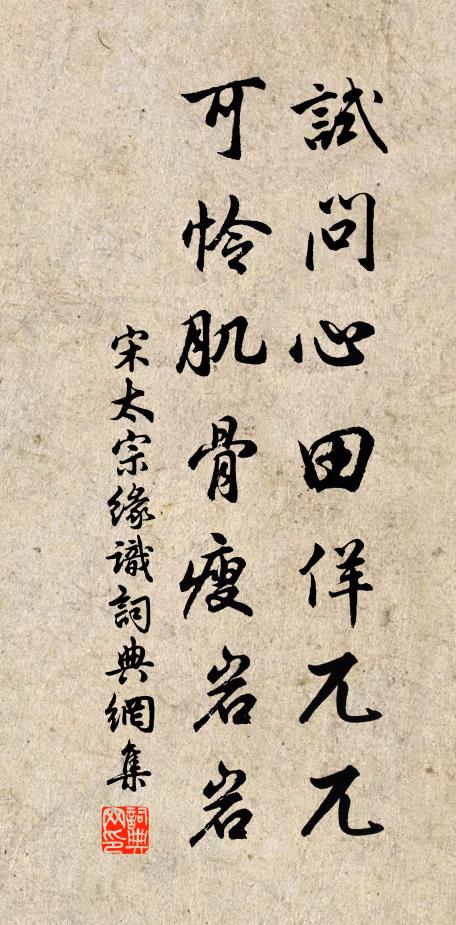 試問心田佯兀兀
可怜肌骨瘦岩岩
宋太宗緣識詞典網集
詞典網印